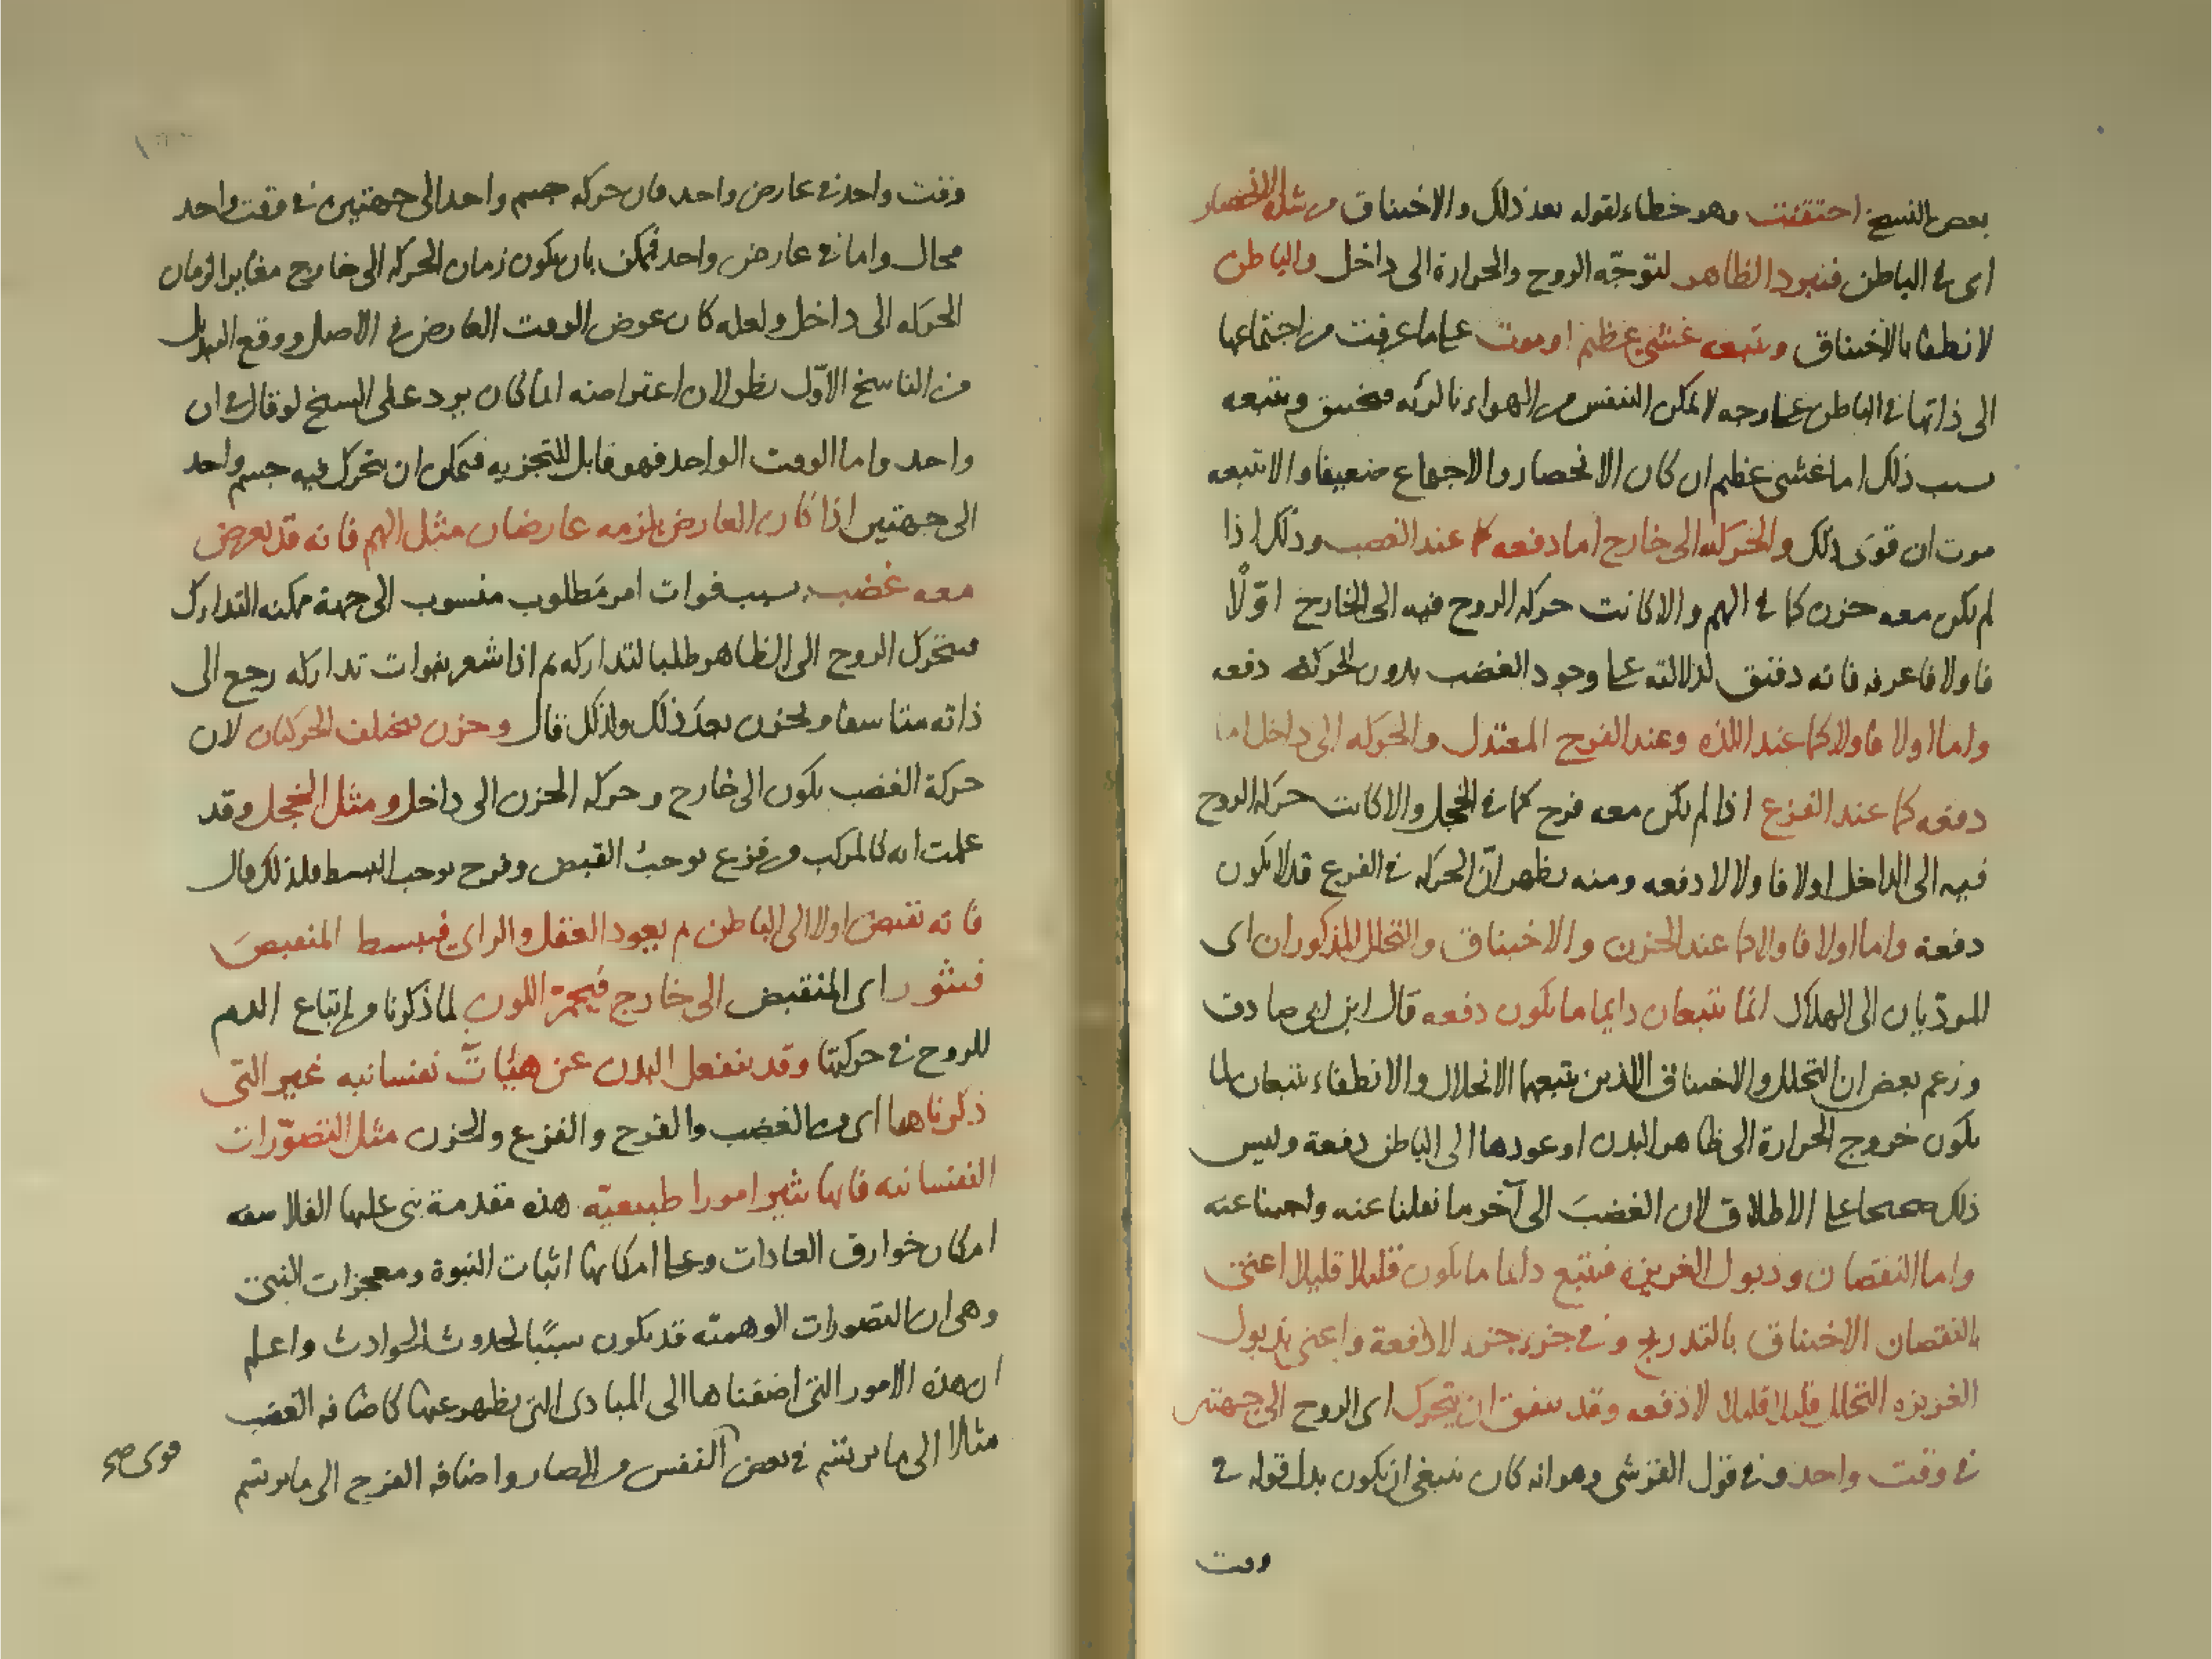 بعض النسخ احتقنت وهو خطاء لقوله بعد ذلك والاختناق من شدة الانحصار
اى فى الباطن فيبرد الظاهر لتوجّه الروح والحرارة الى داخل والباطن
لانطفا بالاختناق وتتبعه غشى عظيم او موت على ما عرفت من اجتماعها
الى ذاتها فى الباطن على وجه لا يمكن التنفس من الهواء بالرئه فتختنق ويتبعه
سبب ذلك اما غشى عظيم ان كان الانحصار والاجتماع ضعيفا والا تتبعه
موت ان قوى ذلك والحركه الى خارج اما دفعه كما عند الغضب وذلك اذا
لم يكن معه حزن كما فى الهم والا كانت حركة الروح فيه الى الخارج اوّلًا
فاولا فاعرفه فانه دقيق لدلالته على وجود الغضب بدون الحركة دفعه
واما اولا فاولا كما عند اللذه وعند الفرح المعتدل والحركه الى داخل اما
دفعه كما عند الفزع اذا لم يكن معه فرح كما فى الخجل والا كانت حركة الروح
فيه الى الداخل اولا فاولا لا دفعه ومنه يظهر انّ الحركه فى الفزع قد لا يكون
دفعة واما اولا فاولا كما عند الحزن والاختناق والتحلل المذكوران اى
المودّيان الى الهلاك انما يتبعان دايما ما يكون دفعه قال ابن ابى صادق
وزعم بعض ان التحلل والاختناق اللذين يتبعهما الانحلال والانطفاء يتبعان لما
يكون خروج الحرارة الى ظاهر البدن او عودها الى الباطن دفعة وليس
ذلك صحيحا على الاطلاق لان الغضبَ الى آخر ما نقلنا عنه واجبنا عنه
واما النقصان وذبول الغريزه فيتبع دائما ما يكون قليلا قليلا اعنى
بالنقصان الاختناق بالتدريج وفى جزء جزء لا دفعة واعنى بذبول
الغريزه التحلل قليلا قليلا لا دفعه وقد يتفق ان يتحرك اى الروح الى جهتين
فى وقت واحد وفى قول القرشى وهو انه كان ينبغى ان يكون بدل قوله فى
وقت
وقت واحد فى عارض واحد فان حركة جسم واحد الى جهتين فى وقت واحد
محال واما فى عارض واحد فيمكن بان يكون زمان الحركة الى خارج مغايرا لزمان
الحركه الى داخل ولعله كان عوض الوقت العارض فى الاصل ووقع التبديل
من الناسخ الاوّل نظر لان اعتراضه انما كان يرد على الشيخ لو قال فى ان
واحد واما الوقت الواحد فهو قابل للتجزيه فيمكن ان يتحرك فيه جسم واحد
الى جهتين اذا كان العارض يلزمه عارضان مثل الهم فانه قد يعرض
معه غضب بسبب فوات امر مطلوب منسوب الى جهة يمكنه التدارك
فيتحرك الروح الى الظاهر طلبا لتداركه ثم اذا شعر بفوات تداركه رجع الى
ذاته متاسفا وبحزن بعدَ ذلك ولذلك قال وحزن فتختلف الحركتان لان
حركة الغضب يكون الى خارج وحركه الحزن الى داخل ومثل الخجل وقد
علمت انه كالمركب من فزع يوجب القبض وفرح يوجب البسط فلذلك قال
فانه تقبض اولا الى الباطن ثم يعود العقل والراى فيبسط المنقبضَ
فيثور اى المنقبض الى خارج فيحمرّ اللون لما ذكرنا من اتباع الدم
للروح فى حركتها وقد ينفعل البدن عن هيئات نفسانيه غير التى
ذكرناها اى من الغضب والفرح والفزع والحزن مثل التصوّرات
النفسانيه فانها تثير امورا طبيعيّه هذه مقدمة بنى عليها الفلاسفه
امكان خوارق العادات وعلى امكانها اثبات النبوة ومعجزات النبى
وهى ان التصورات الوهميّه قد يكون سببًا لحدوث الحوادث واعلم
ان هذه الامور التى اضفناها الى المبادى التى يظهر عنها كاضافه الغضب
مثالا الى ما يرتسم فى بعض النفس من المضار واضافه الفرح الى ما يرتسم
قوى صح